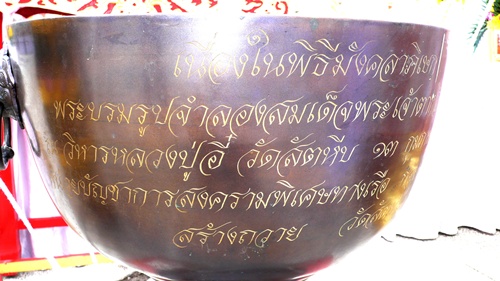 เนื่องในพิธีมังคลาภิเษก
พระบรมรูปจำลองสมเด็จพระเจ้าตา
วิหารหลวงปู่อี๋ วัดสัตหีบ ๑๓
บัญชาการสงครามพิเศษทางเรือ
สร้างถวาย วัดสัต